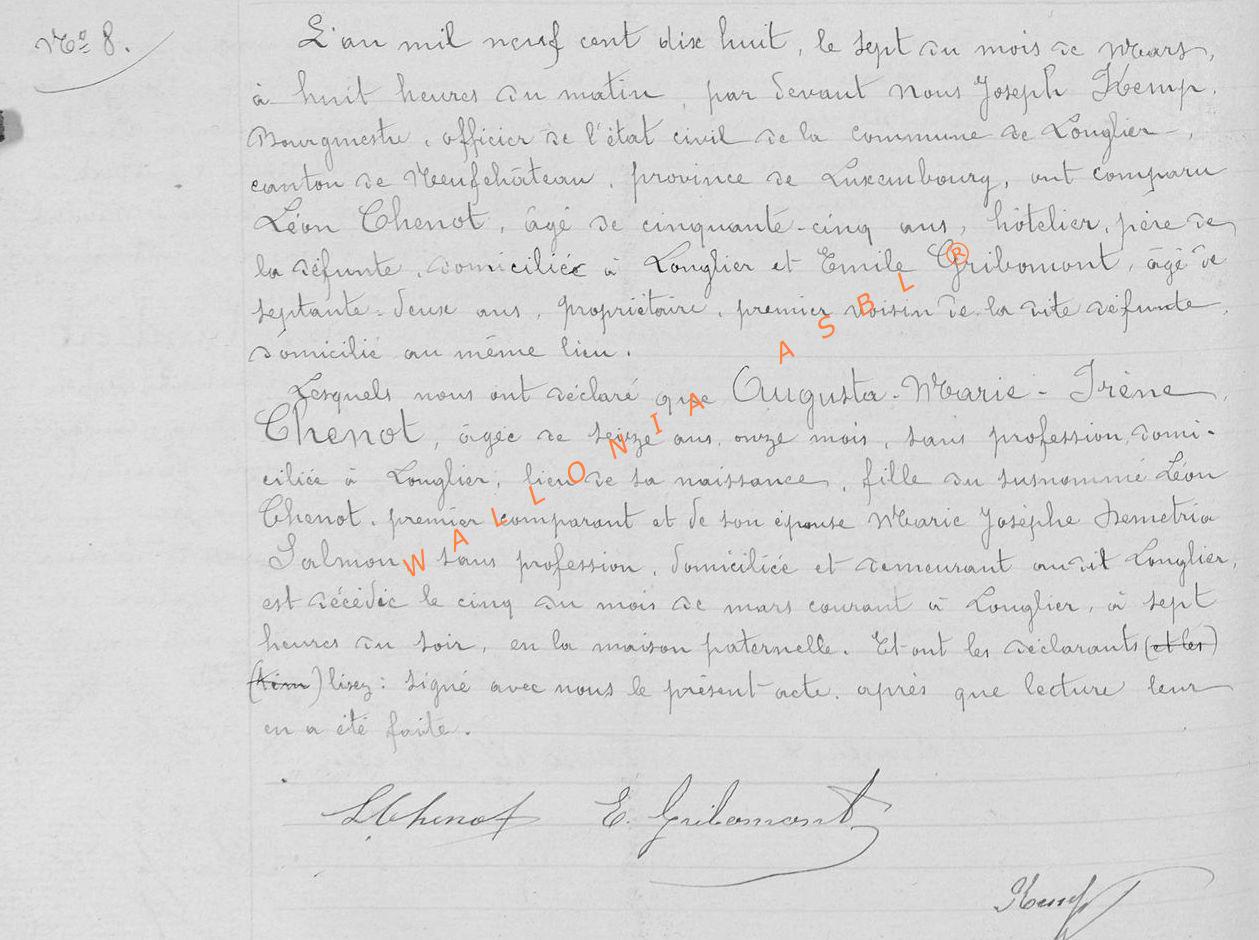 N° 8.
L'an mil neuf cent dix huit, le sept du mois de Mars,
à huit heures du matin, par devant nous Joseph Kemp,
Bourgmestre, officier de l'état civil de la commune de Longlier,
canton de Neufchâteau, province de Luxembourg, ont comparu
Léon Chenot, âgé de cinquante-cinq ans, hôtelier, père de
la défunte, domiciliée à Longlier et Emile Gribomont, âgé de
septante-deux ans, propriétaire, premier voisin de la dite défunte,
domicilié au même lieu.
Lesquels nous ont déclaré que Augusta-Marie-Irène
Chenot, âgée de seize ans, onze mois, sans profession, domi-
ciliée à Longlier, lieu de sa naissance, fille du susnommé Léon
Chenot, premier comparant et de son épouse Marie Josèphe Demetria
Salmon, sans profession, domiciliée et demeurant audit Longlier,
est décédée le cinq du mois de mars courant à Longlier, à sept
heures du soir, en la maison paternelle. Et ont les déclarants (et les)
(tém) lisez: signé avec nous le présent acte, après que lecture leur
en a été faite.
LChenot E. Gribomont
Kemp
WALLONIA ASBL ®